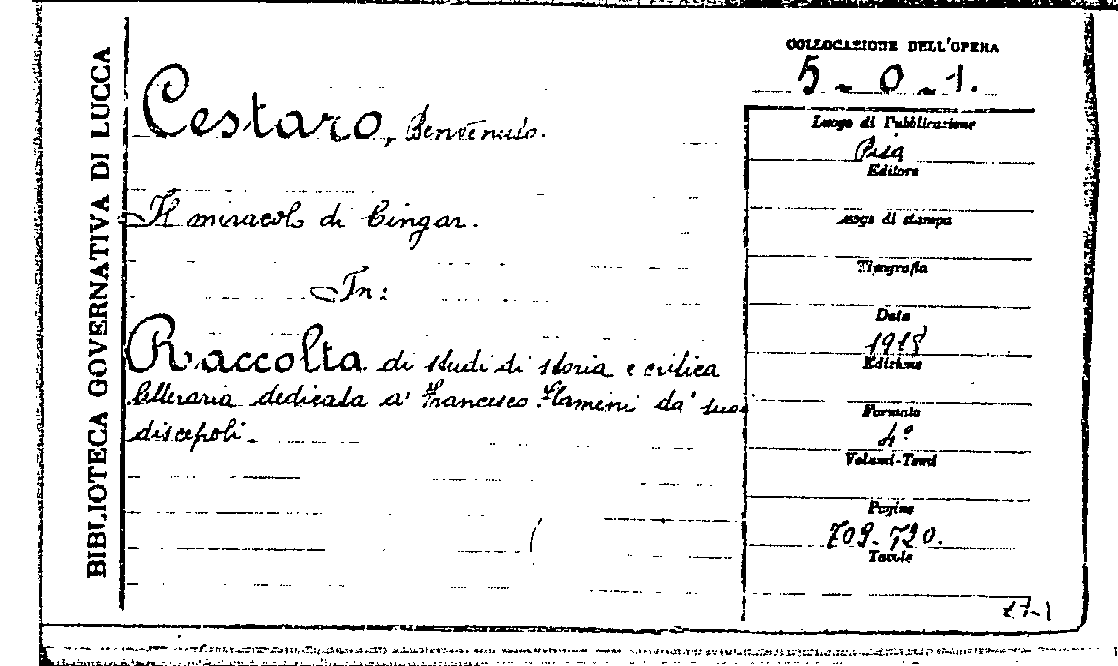 BIBLIOTECA GOVERNATIVA DI LUCCA
Cestaro, Benvenuto.
Il miracolo di Cingar.
In:
Raccolta di studi di storia e critica
letteraria dedicata a' Francesco Flamini da' suoi
discepoli.
COLLOCAZIONE DELL'OPERA
5-0-1.
Luogo di Pubblicazione
Pisa
Editore
Luogo di stampa
Tipografia
Data
1918
Edizione
Formato
4º
Volumi-Tomi
Pagine
709-720.
Tavole